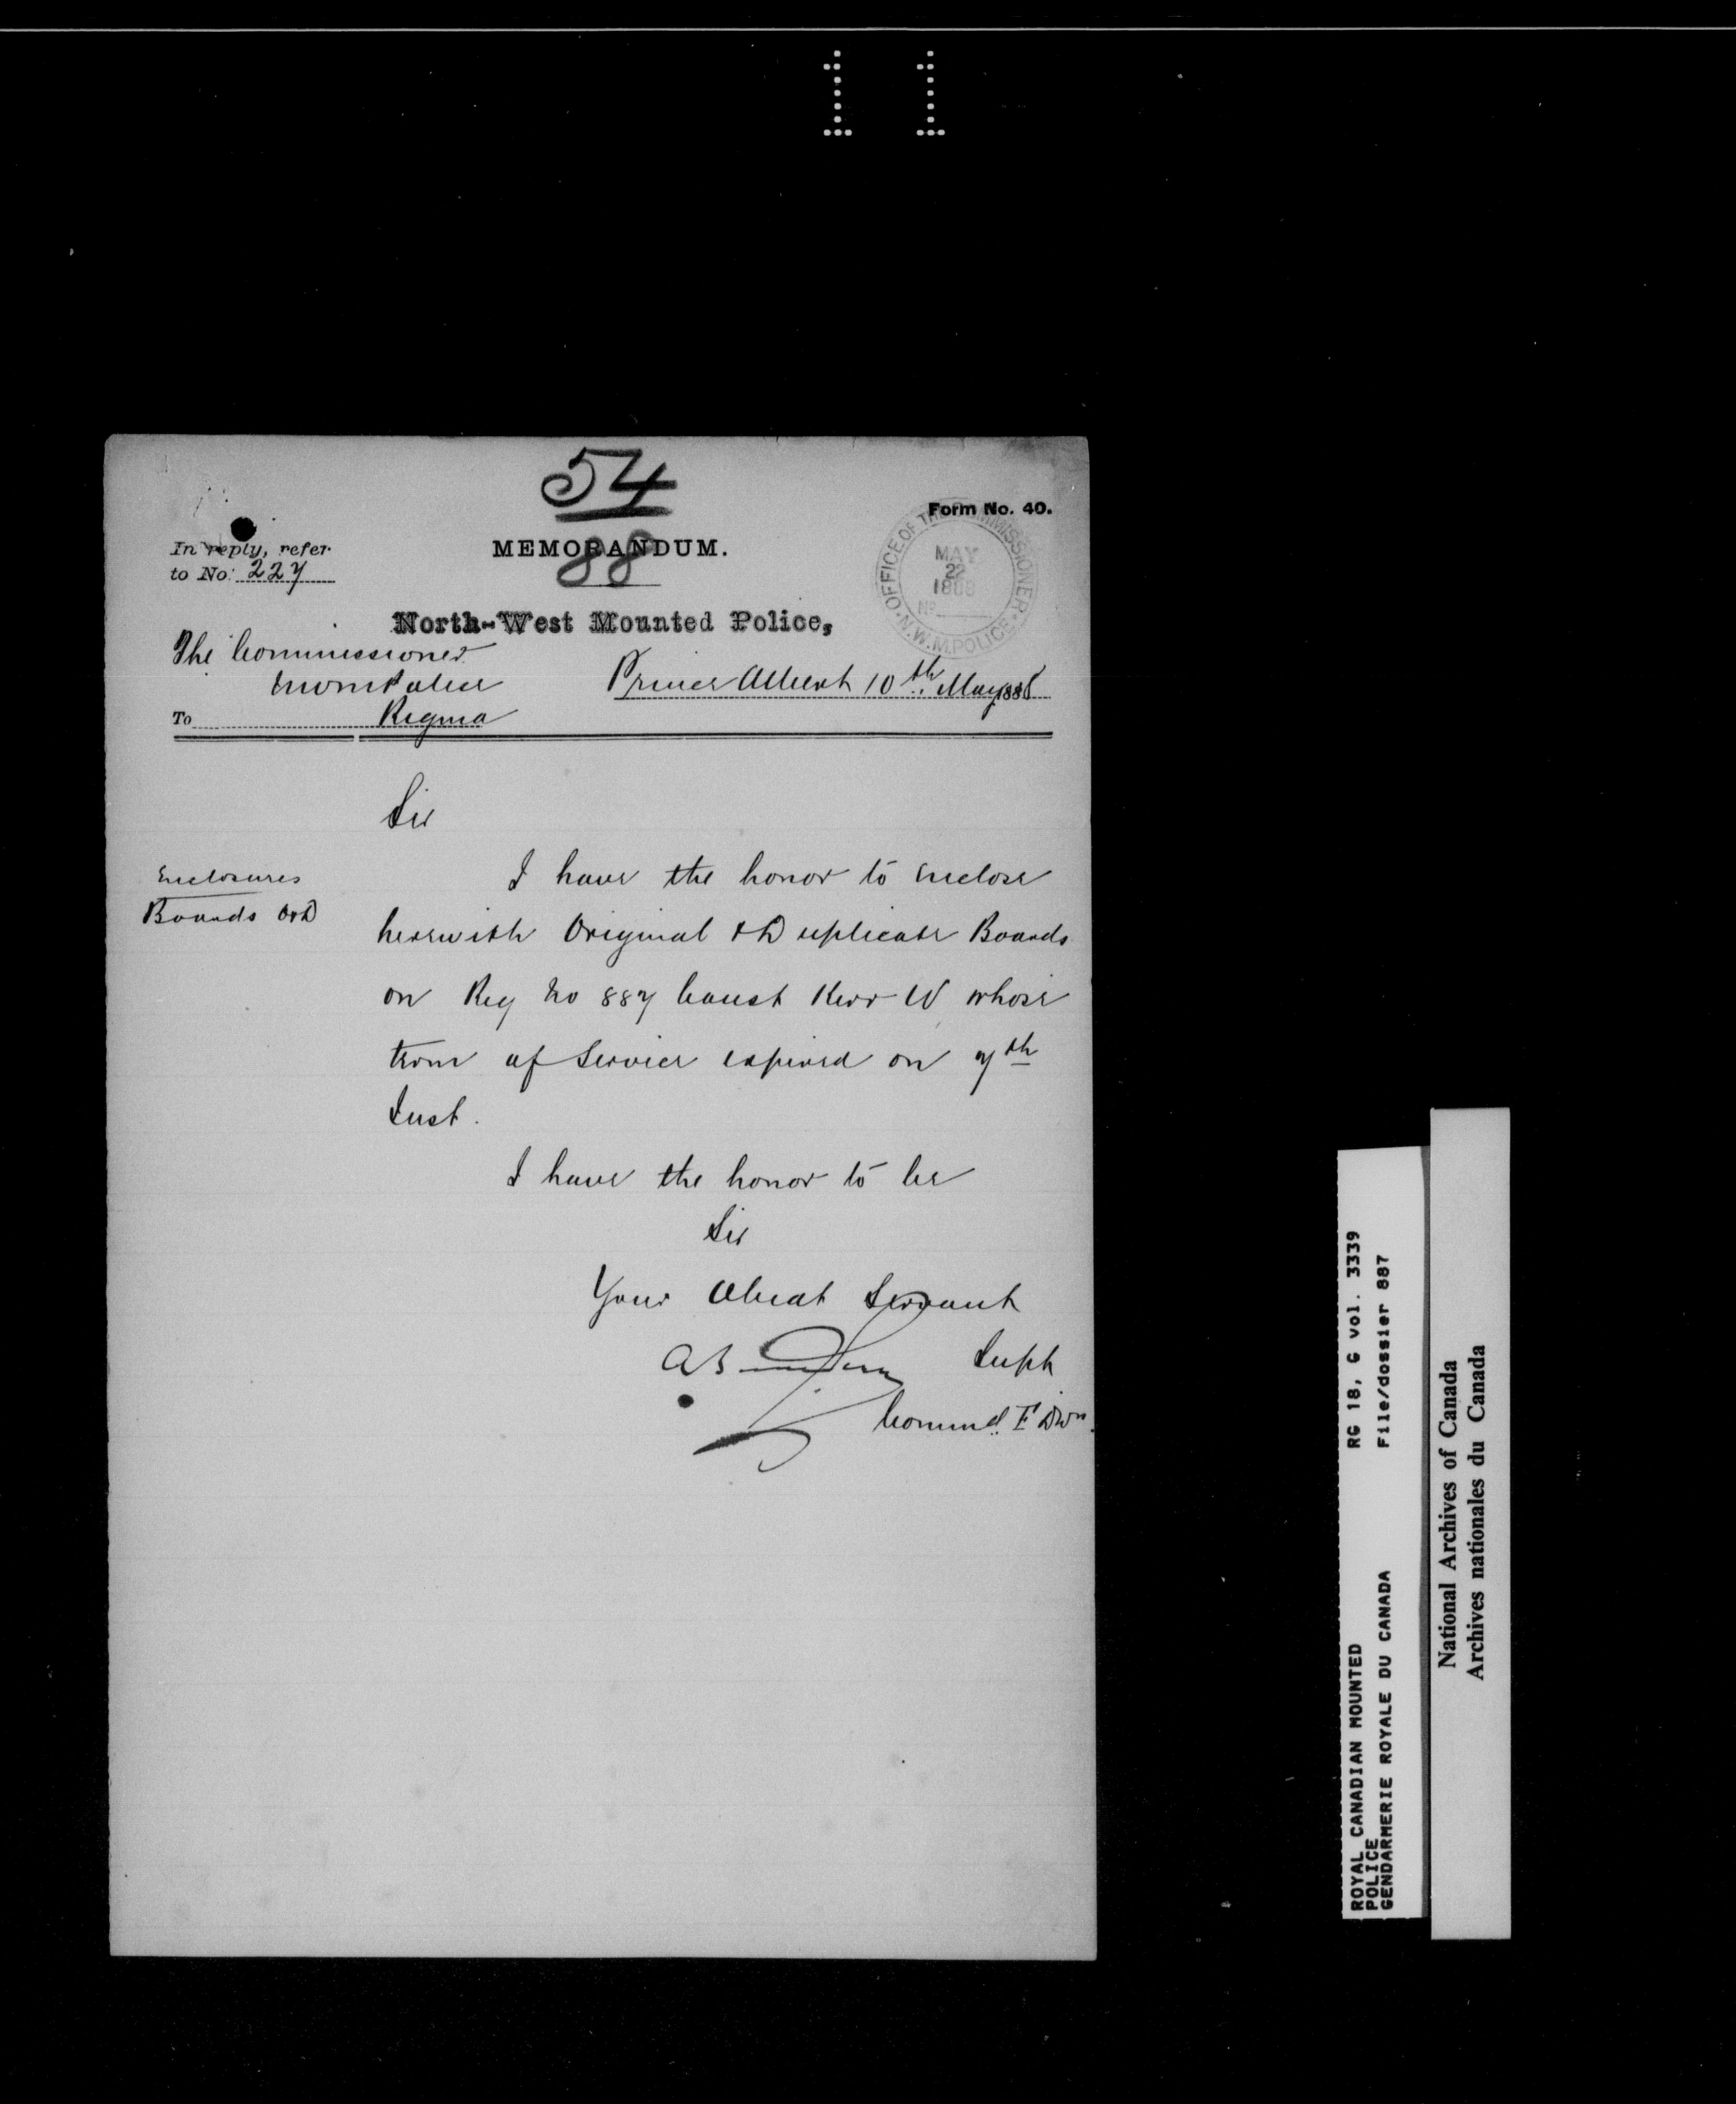 11
54
88
Form No. 40.
In reply, refer
to No. 227
MEMORANDUM.
OFFICE OF THE COMMISSIONER
MAY
22
1888
No
N.W.M.POLICE
North-West Mounted Police,
The Commissioner
NWM Police
To Regina
Prince Albert 10th May 1888
Sir
Enclosures
Boards O&D
I have the honor to enclose
herewith Original & Duplicate Boards
on Reg No 887 Const Kerr W whose
term of Service expired on 7th
Inst.
I have the honor to be
Sir
Your Obedt Servant
Supt
Commd. F Divn.
ROYAL CANADIAN MOUNTED
POLICE
GENDARMERIE ROYALE DU CANADA
RG 18, G vol. 3339
File/dossier 887
National Archives of Canada
Archives nationales du Canada